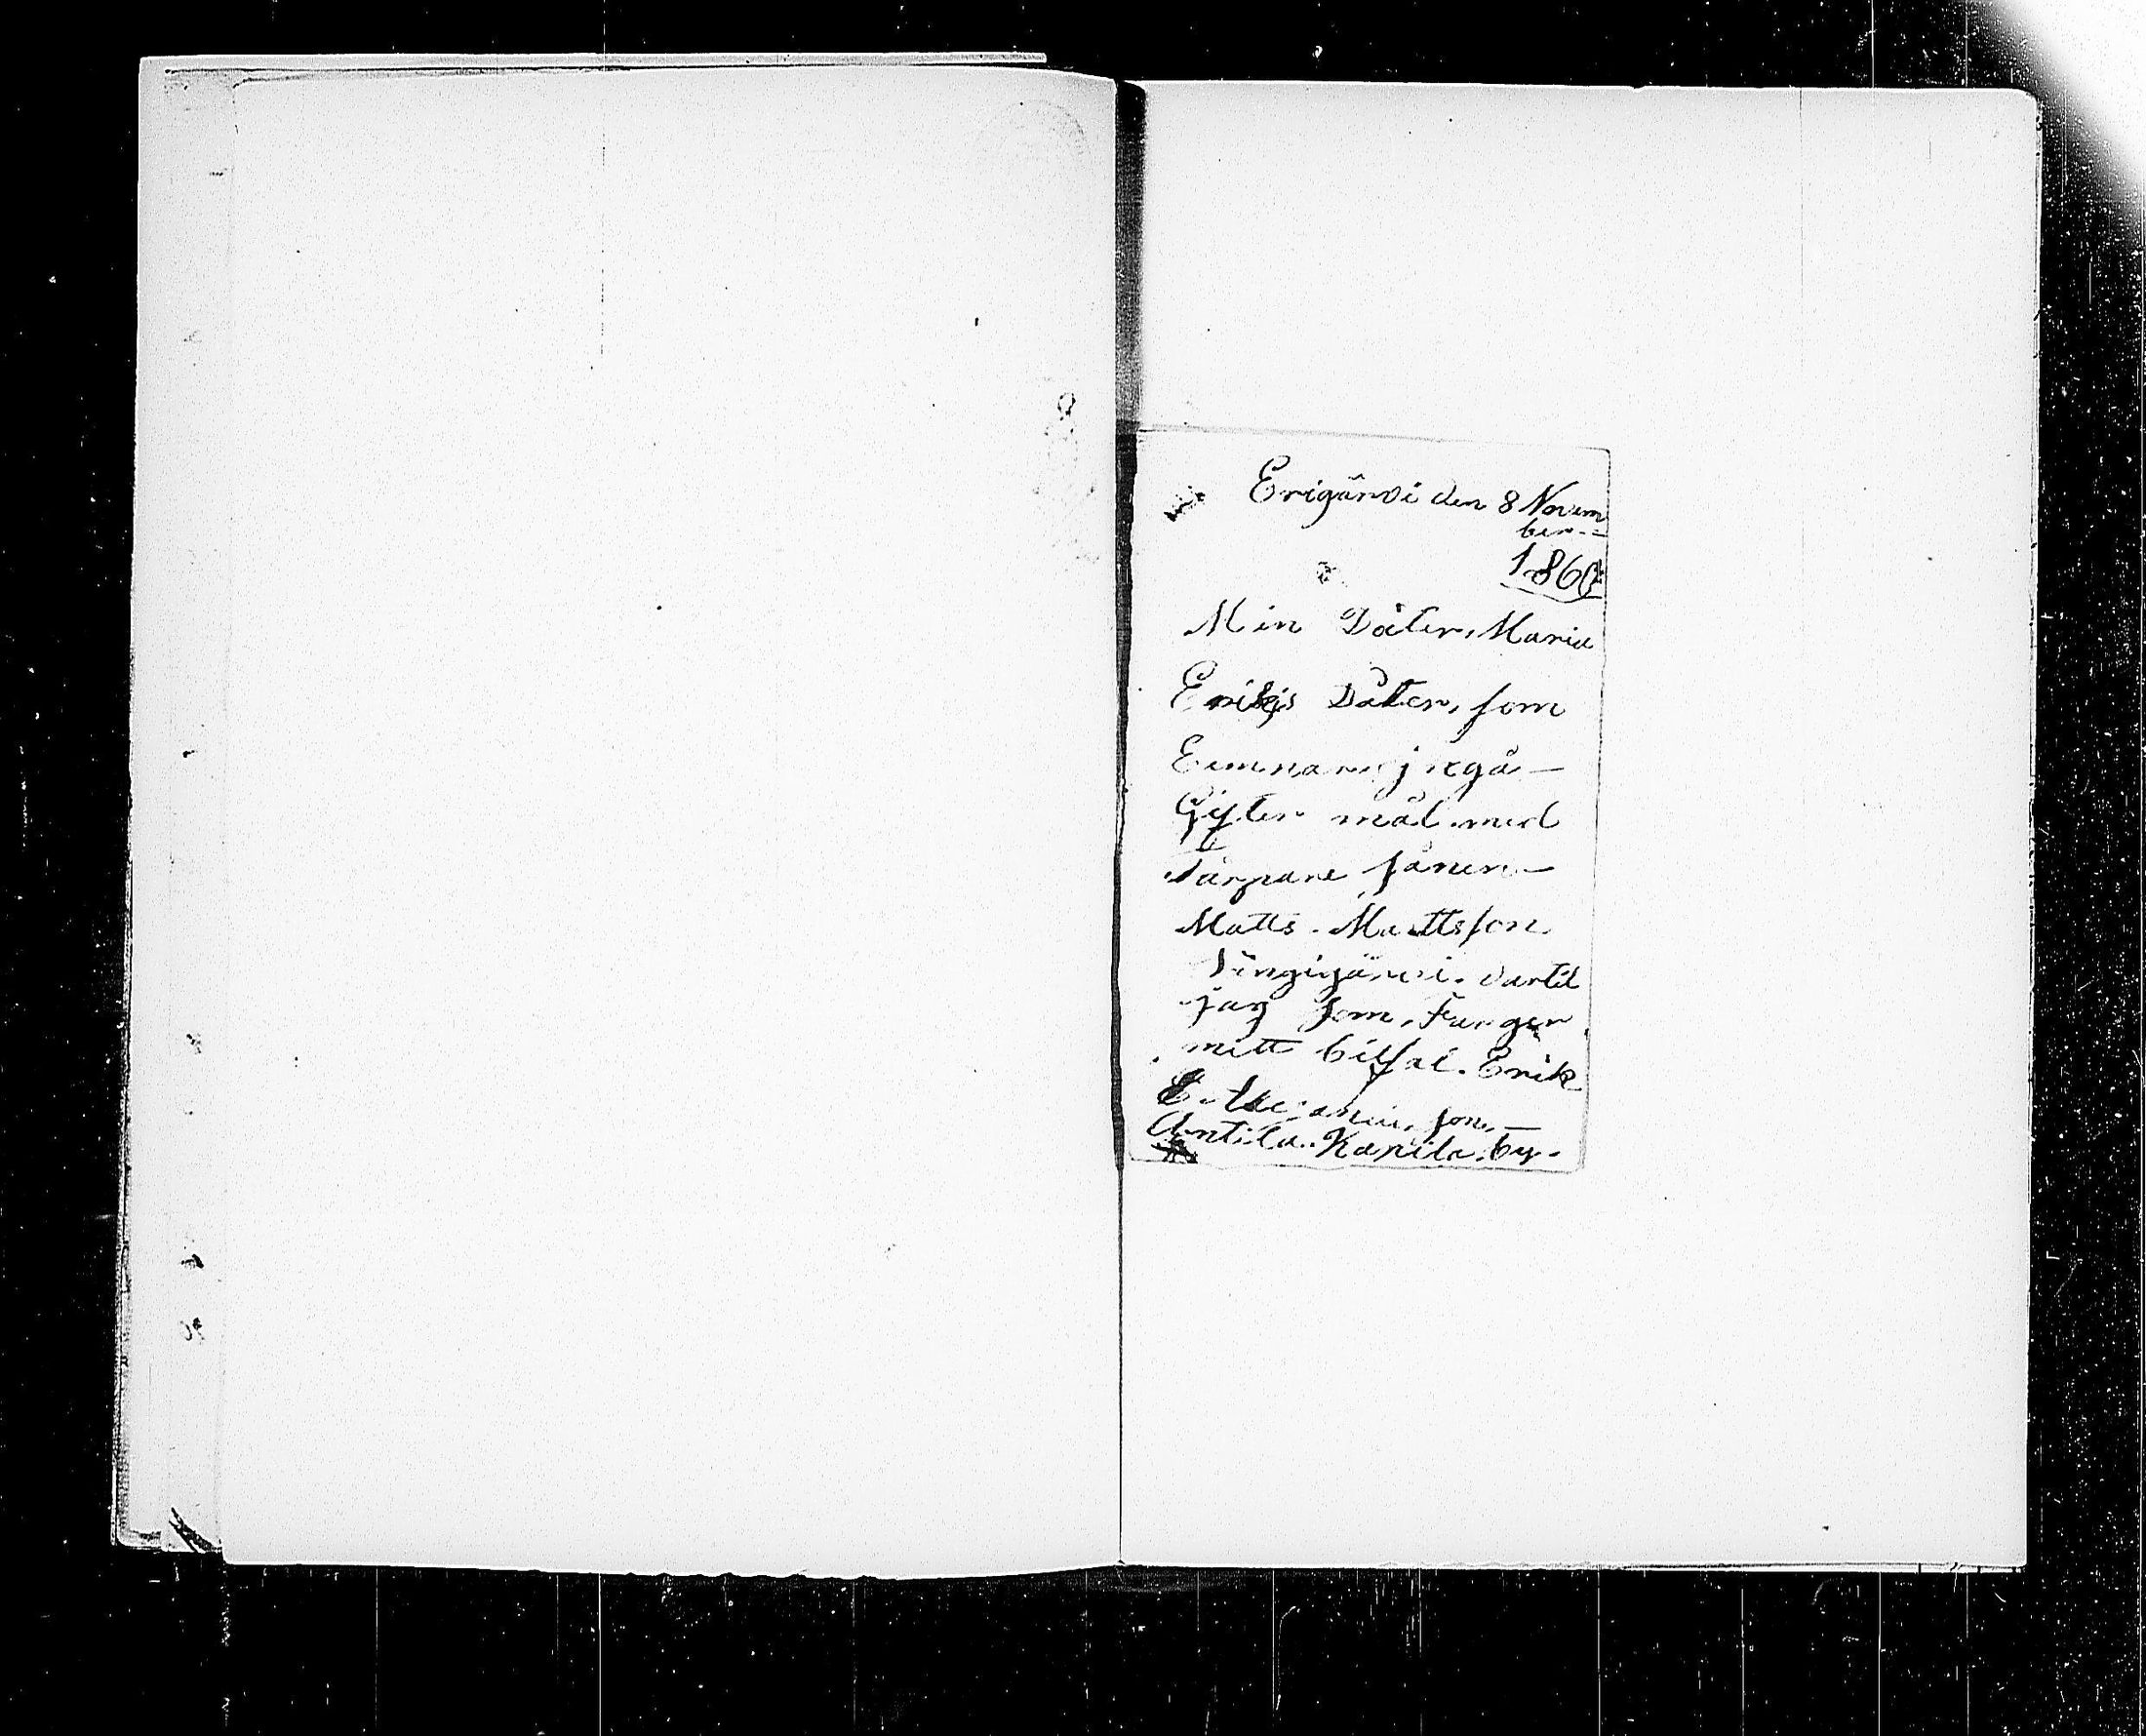 Erigärvi den 8 Novem
ber.=
1860
Min Dåter, Maria
Eriks Dåter, som
Gifter mål med
Tårpare sånen—
Matts. Mattsson
Vingigärvi. dartil
jag som, Fanger
mitt bilfal. Erik
son,—
Antila. Kanila. by.